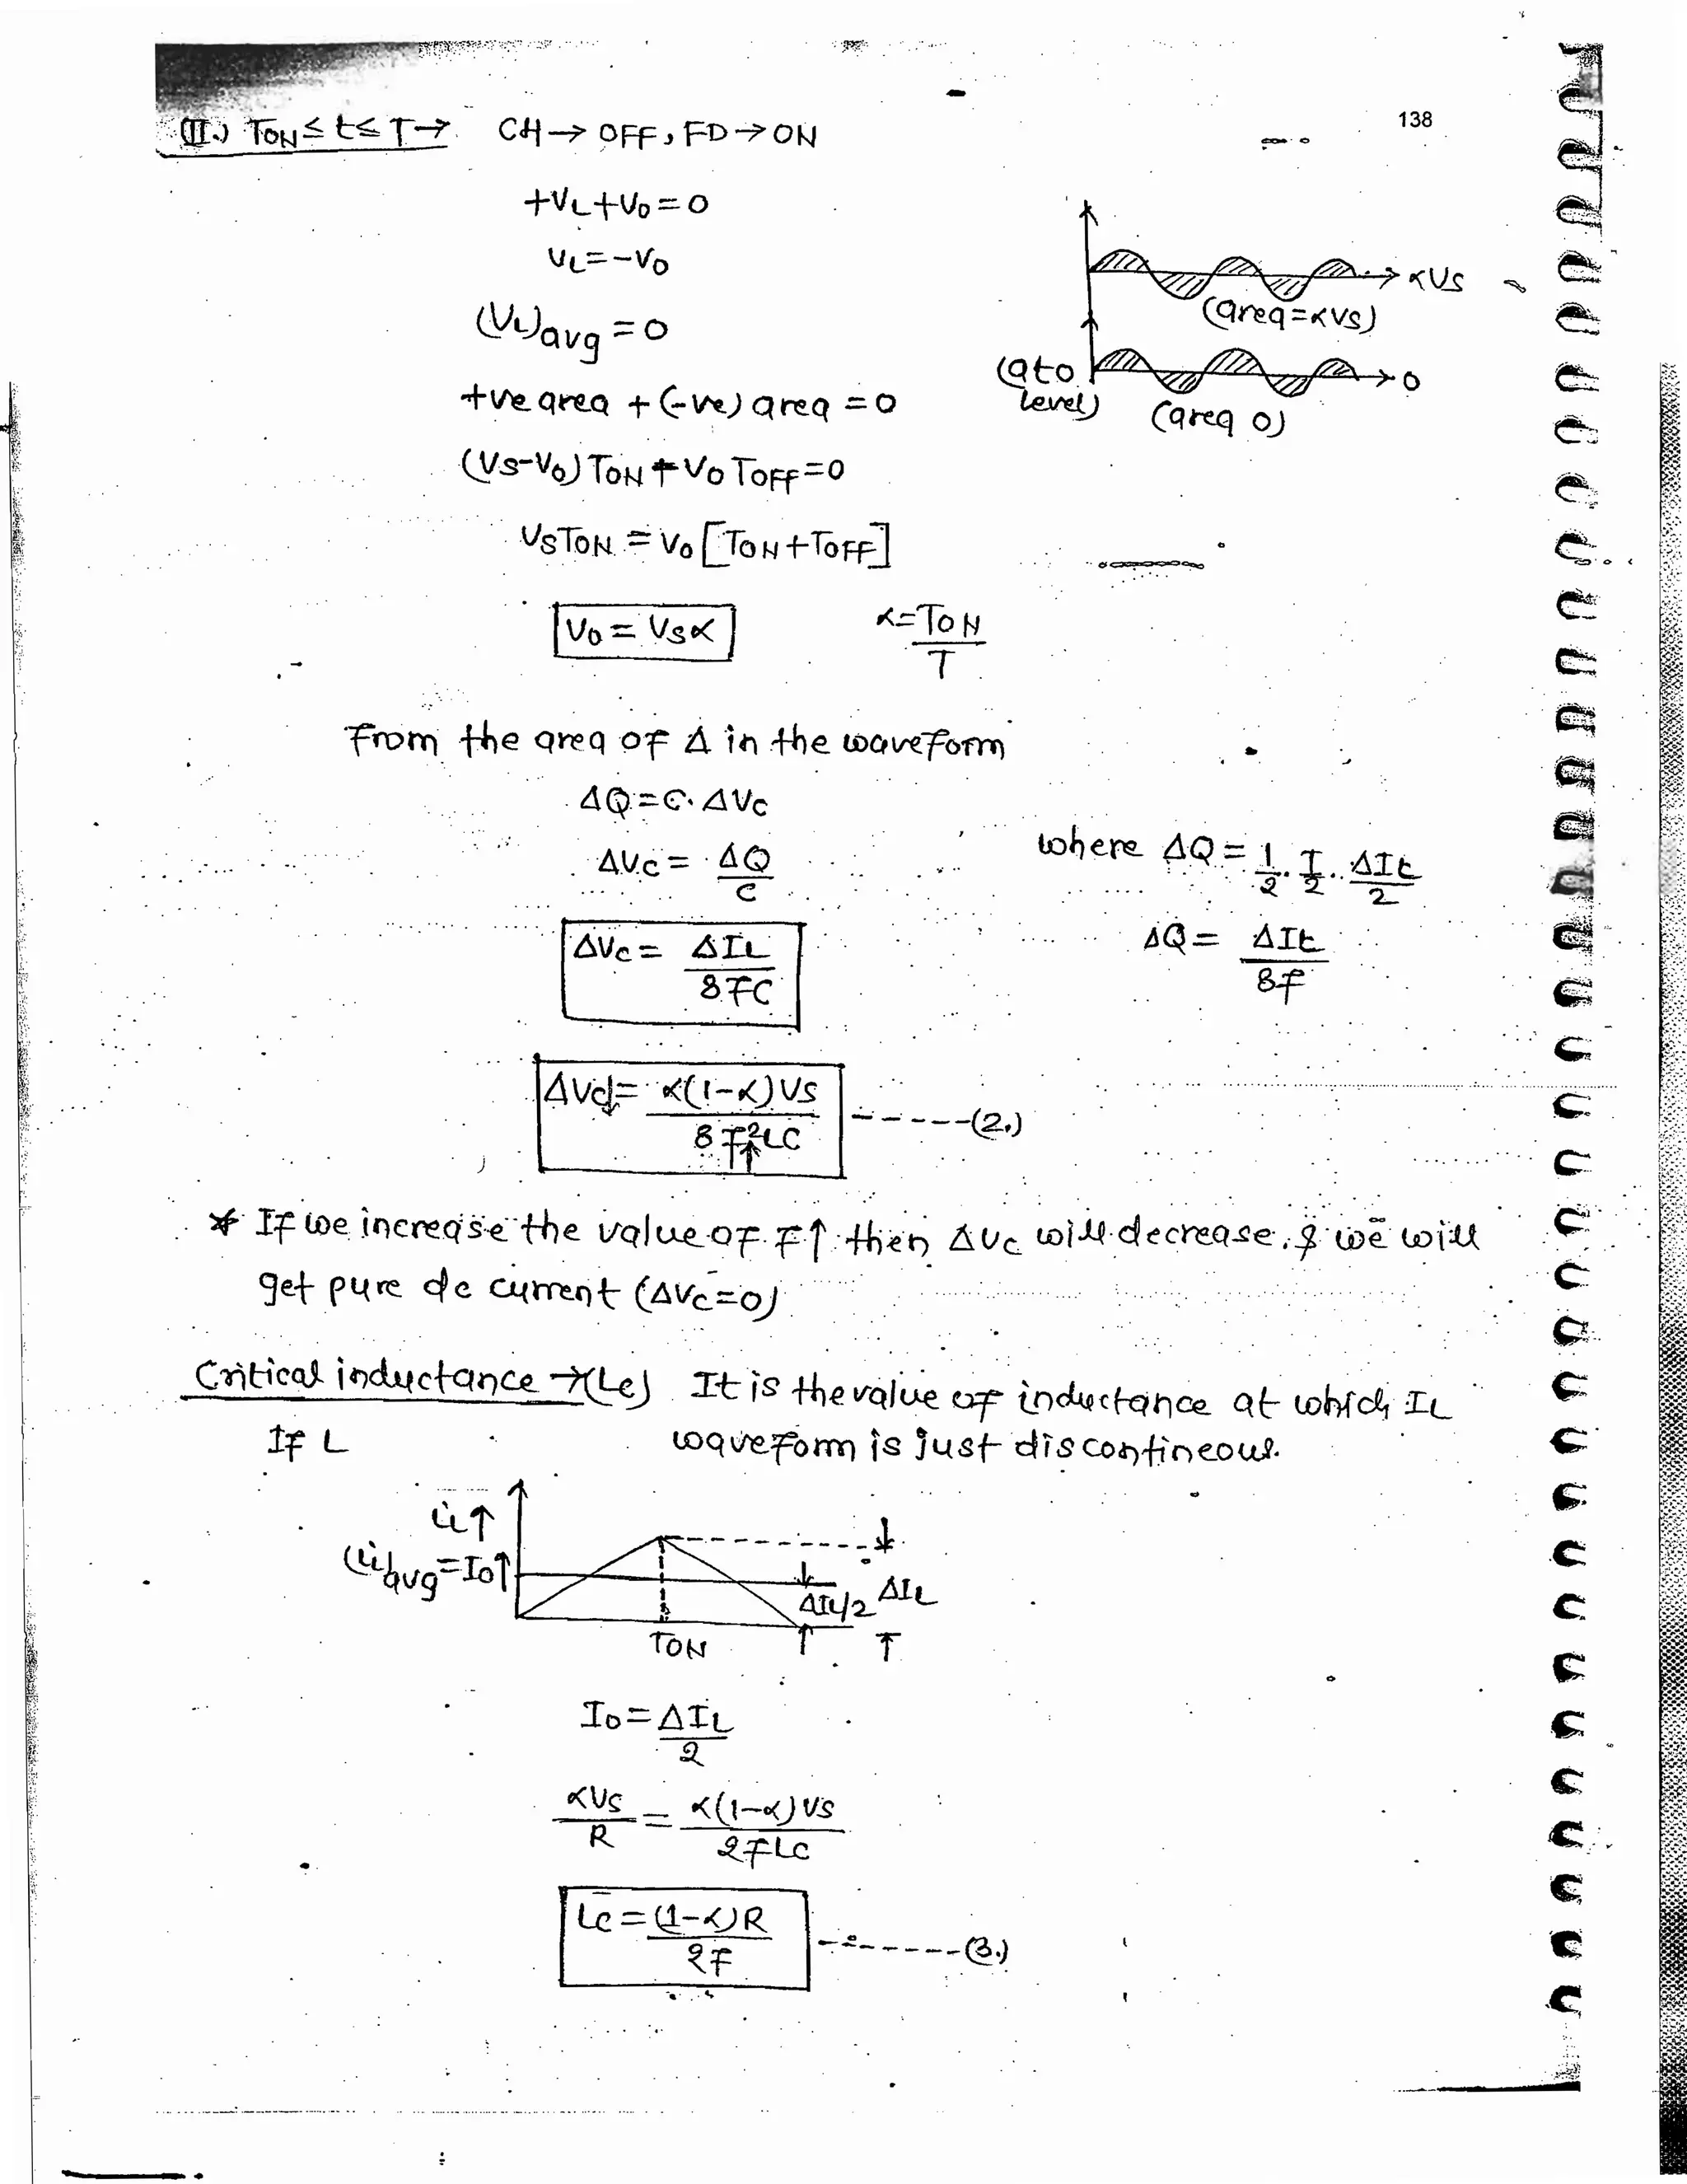 138
(II.) TON ≤ t ≤ T → CH → OFF, FD → ON
+VL+V0 = 0
VL = -V0
(VL)avg = 0
+ve area + (-ve) area = 0
(VS-V0) TON + V0 TOFF = 0
VS TON = V0 [TON + TOFF]
V0 = VS α
α = TON / T
αVS
(area = αVS)
(at 0 level)
0
(area 0)
From the area of Δ in the waveform
ΔQ = C. ΔVC
ΔVC = ΔQ / C
where ΔQ = 1/2 . T/2 . ΔIL/2
ΔVC = ΔIL / 8FC
ΔQ = ΔIL / 8f
ΔVC↓ = α(1-α)VS / 8F²↑LC ------(2.)
* If we increase the value of F↑ then ΔVC will decrease, & we will
get pure dc current (ΔVC = 0)
Critical inductance → (LC) It is the value of inductance at which IL
If L waveform is just discontineous.
iL↑
(iL)avg = I0↑
ΔIL/2 ΔIL
TON T
I0 = ΔIL / 2
αVS / R = α(1-α)VS / 2FLC
LC = (1-α)R / 2F -------(3.)